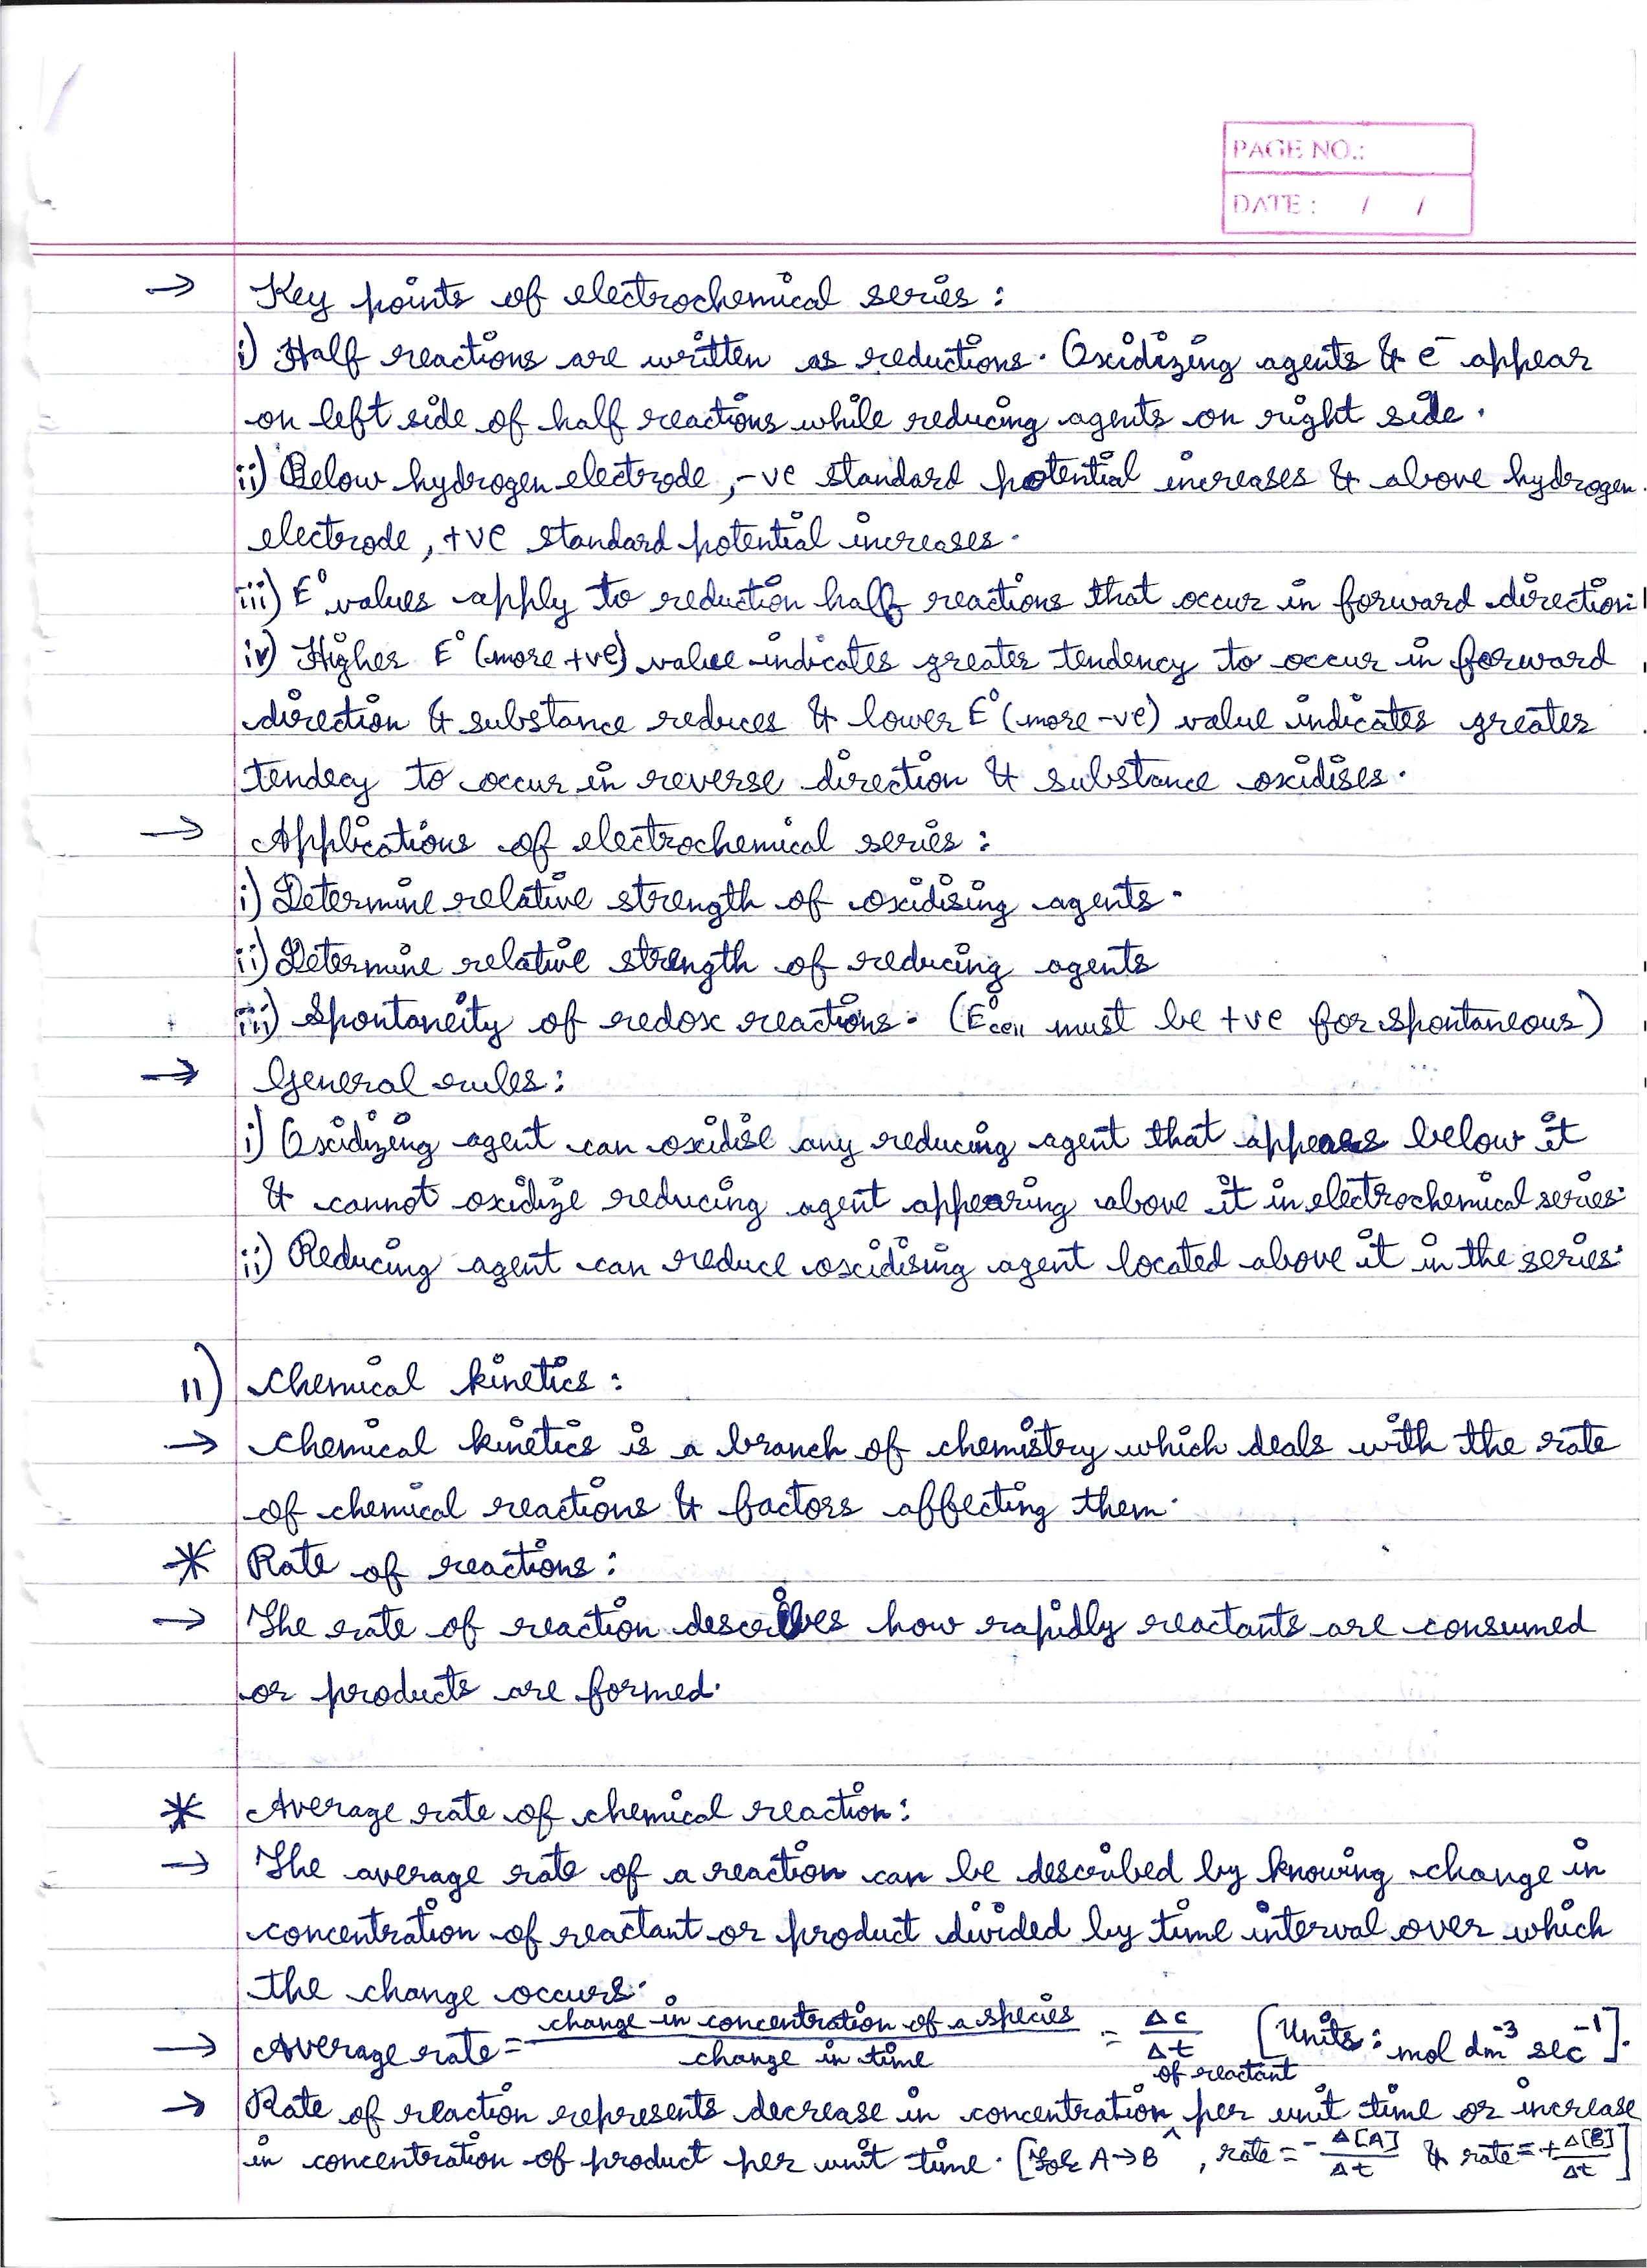 PAGE NO.:
DATE : / /
→ Key points of electrochemical series :
i) Half reactions are written as reductions. Oxidizing agents & e⁻ appear
on left side of half reactions while reducing agents on right side.
ii) Below hydrogen electrode, -ve standard potential increases & above hydrogen
electrode, +ve standard potential increases.
iii) E° values apply to reduction half reactions that occur in forward direction.
iv) Higher E° (more +ve) value indicates greater tendency to occur in forward
direction & substance reduces & lower E° (more -ve) value indicates greater
tendecy to occur in reverse direction & substance oxidises.
→ Applications of electrochemical series :
i) Determine relative strength of oxidising agents.
ii) Determine relative strength of reducing agents
iii) Spontaneity of redox reactions. (E°cell must be +ve for spontaneous)
→ General rules :
i) Oxidizing agent can oxidise any reducing agent that appears below it
& cannot oxidize reducing agent appearing above it in electrochemical series.
ii) Reducing agent can reduce oxidising agent located above it in the series.
11) Chemical kinetics :
→ Chemical kinetics is a branch of chemistry which deals with the rate
of chemical reactions & factors affecting them.
* Rate of reactions :
→ The rate of reaction describes how rapidly reactants are consumed
or products are formed.
* Average rate of chemical reaction :
→ The average rate of a reaction can be described by knowing change in
concentration of reactant or product divided by time interval over which
the change occurs.
→ Average rate = change in concentration of a species / change in time = Δc / Δt [Units : mol dm⁻³ sec⁻¹].
of reactant
→ Rate of reaction represents decrease in concentration ^ per unit time or increase
in concentration of product per unit time. [For A → B , rate = - Δ[A] / Δt & rate = + Δ[B] / Δt]